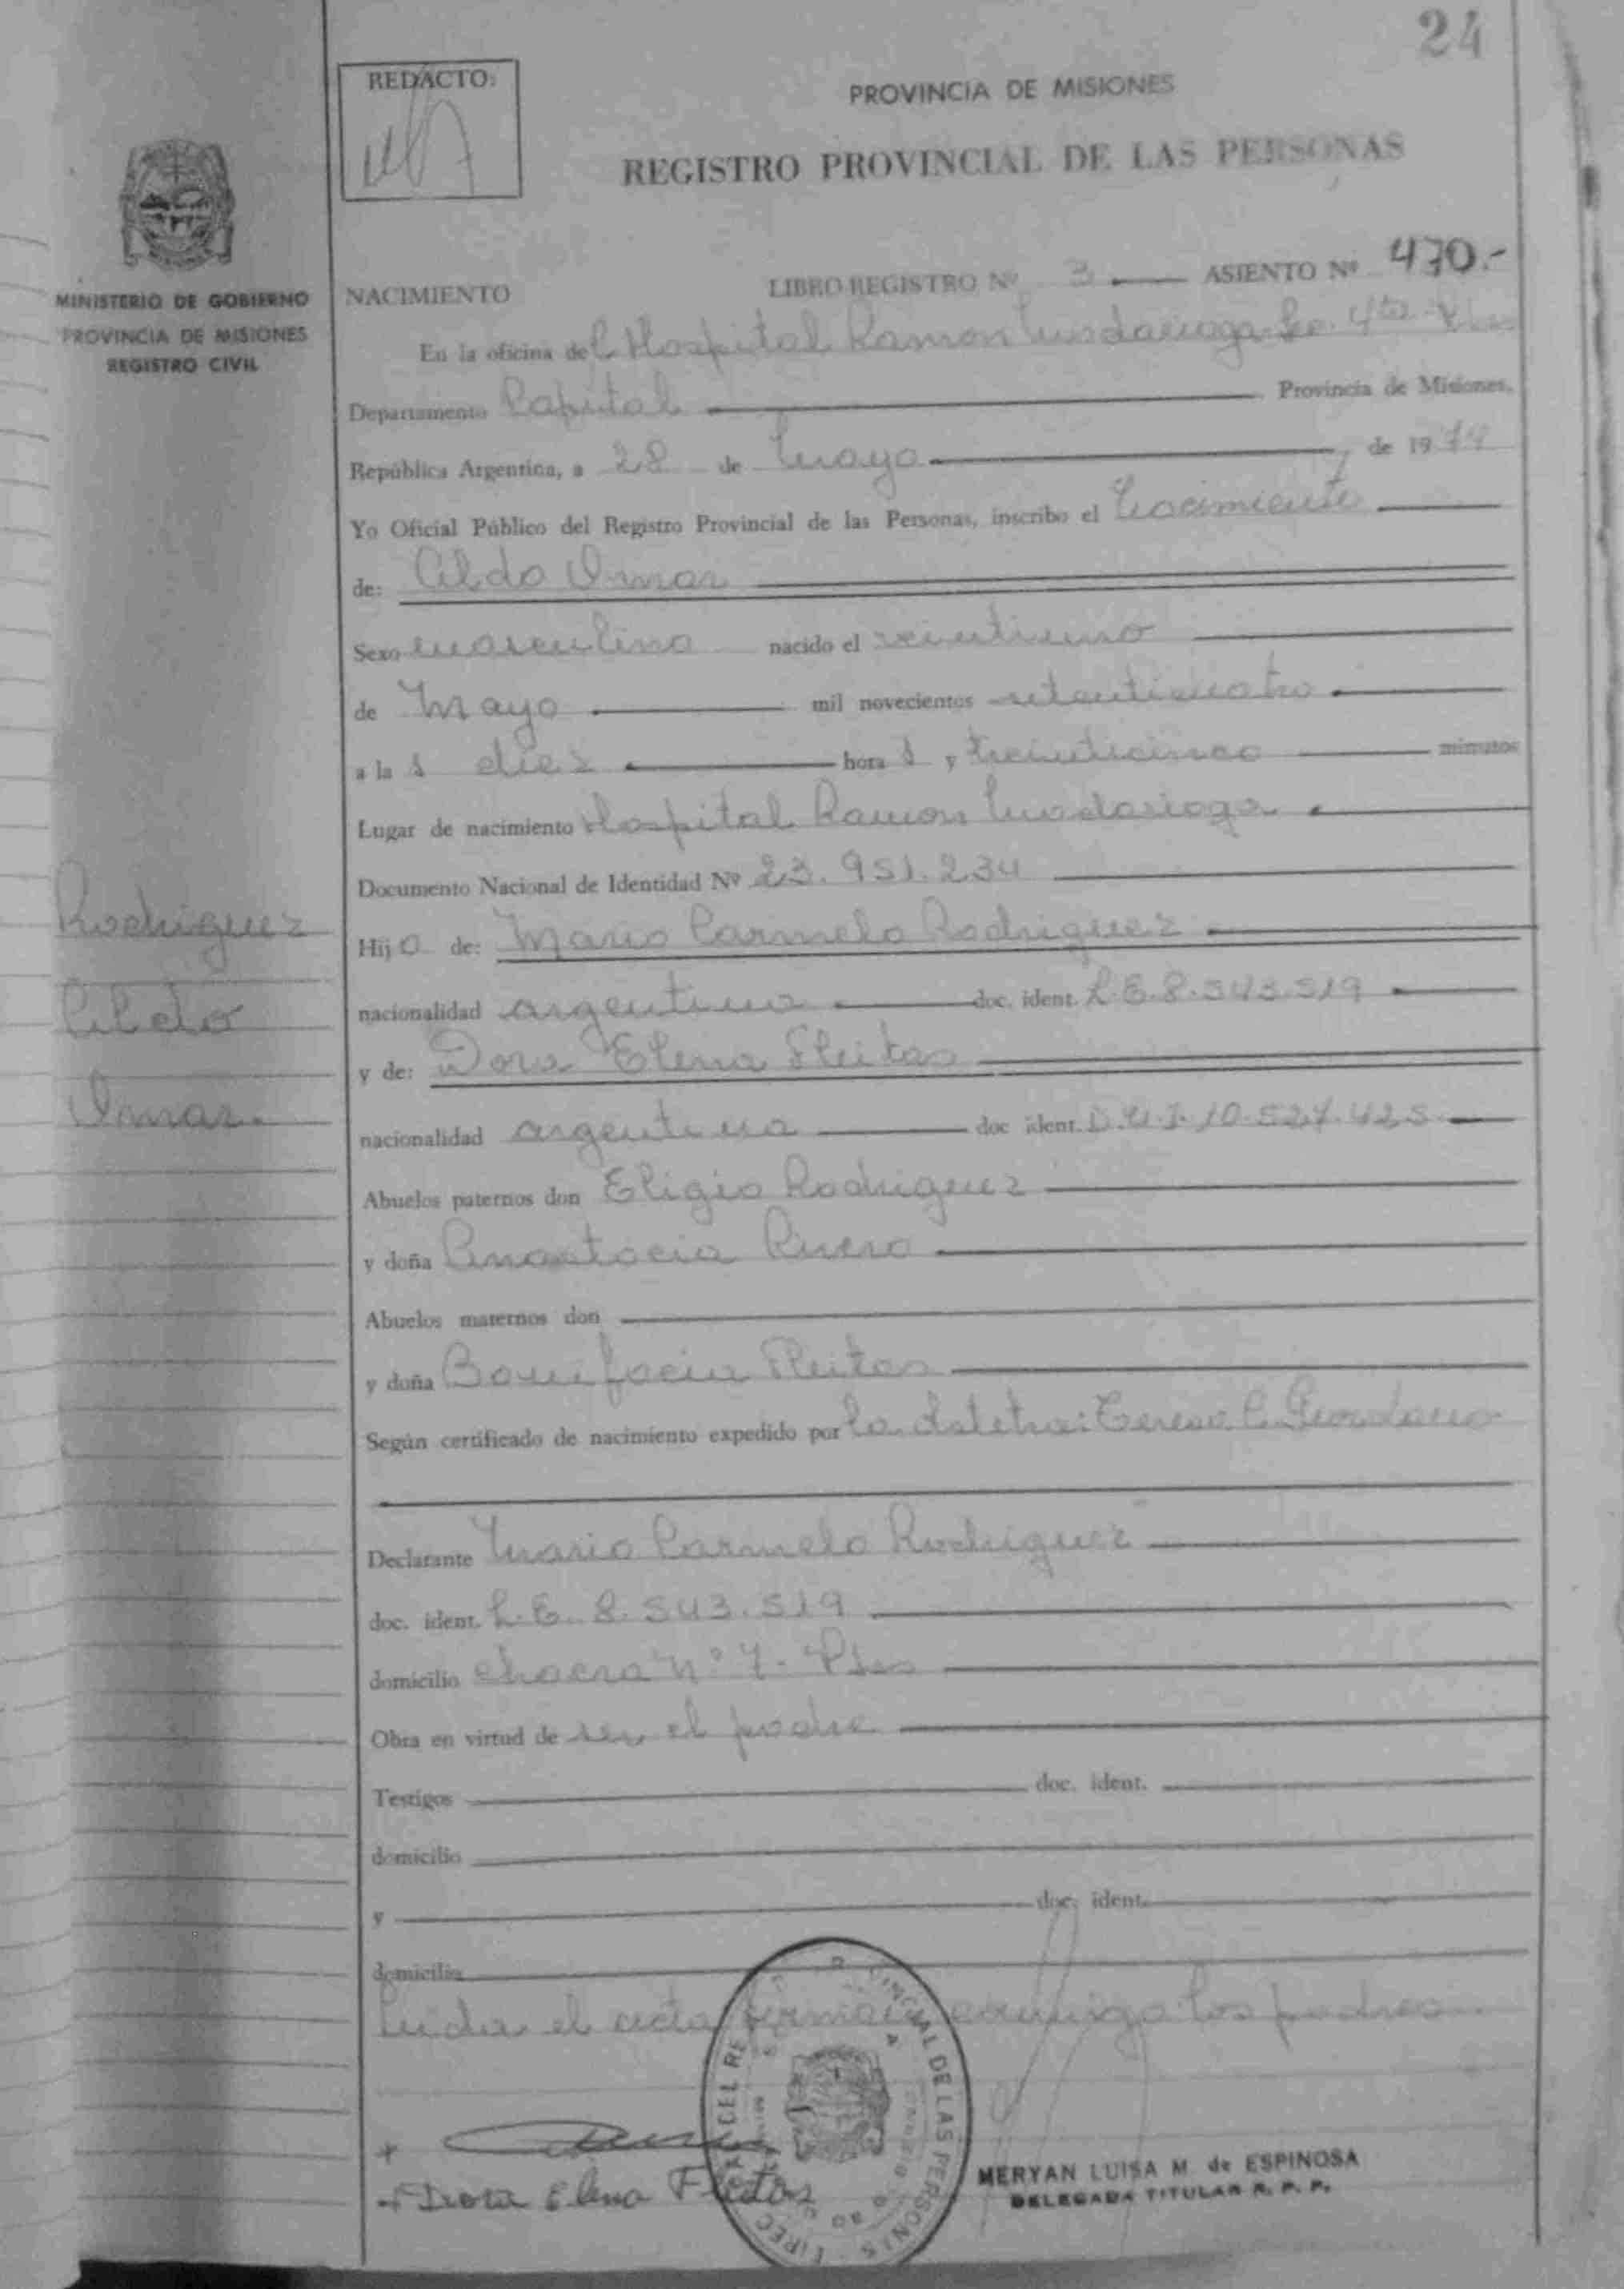 24
REDACTO:
PROVINCIA DE MISIONES
REGISTRO PROVINCIAL DE LAS PERSONAS
MINISTERIO DE GOBIERNO
PROVINCIA DE MISIONES
REGISTRO CIVIL
NACIMIENTO LIBRO REGISTRO Nº 3 ASIENTO Nº 470.-
En la oficina del Hospital Ramon Madariaga Sec. 4ta Pdas
Departamento Capital Provincia de Misiones.
República Argentina, a 28 de Mayo de 1974
Yo Oficial Público del Registro Provincial de las Personas, inscribo el Nacimiento
de: Aldo Omar
Sexo masculino nacido el veintiuno
de Mayo mil novecientos setenticuatro
a la s diez hora s y treinticinco minutos
Lugar de nacimiento Hospital Ramon Madariaga
Documento Nacional de Identidad Nº 23.951.234
Hijo de: Mario Carmelo Rodriguez
nacionalidad argentina doc. ident. L.E. 8.543.519
y de: Dora Elena Fleitas
nacionalidad argentina doc ident. D.N.I. 10.527.425
Abuelos paternos don Eligio Rodriguez
y doña Anastacia Rivero
Abuelos maternos don
y doña Bonifacia Fleitas
Según certificado de nacimiento expedido por la obstetra: Teresa C. Giordano
Declarante Mario Carmelo Rodriguez
doc. ident. L.E. 8.543.519
domicilio chacra Nº 7. Pdas
Obra en virtud de ser el padre
Testigos doc. ident.
domicilio
y doc. ident.
domicilio
Leida el acta firman conmigo los padres.
Rodriguez
Aldo
Omar.
Dora Elena Fleitas
MERYAN LUISA M. de ESPINOSA
DELEGADA TITULAR R. P. P.